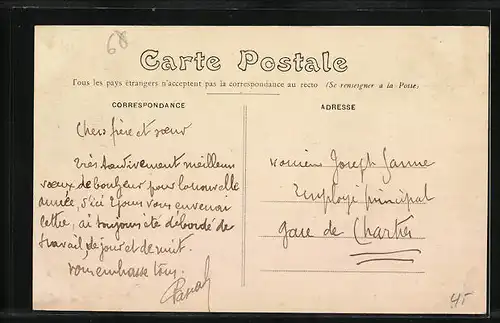 68
Carte Postale
Tous les pays étrangers n'acceptent pas la correspondance au recto (Se renseigner à la Poste)
CORRESPONDANCE
ADRESSE
Chers frère et sœur
très tardivement meilleurs
vœux de bonheur pour la nouvelle
année, d'ici 2 jours vous enverrai
lettre, ai toujours été débordé de
travail, de jour et de nuit.
vous embrasse tous.
Monsieur Joseph
Employé principal
gare de Chartres
45